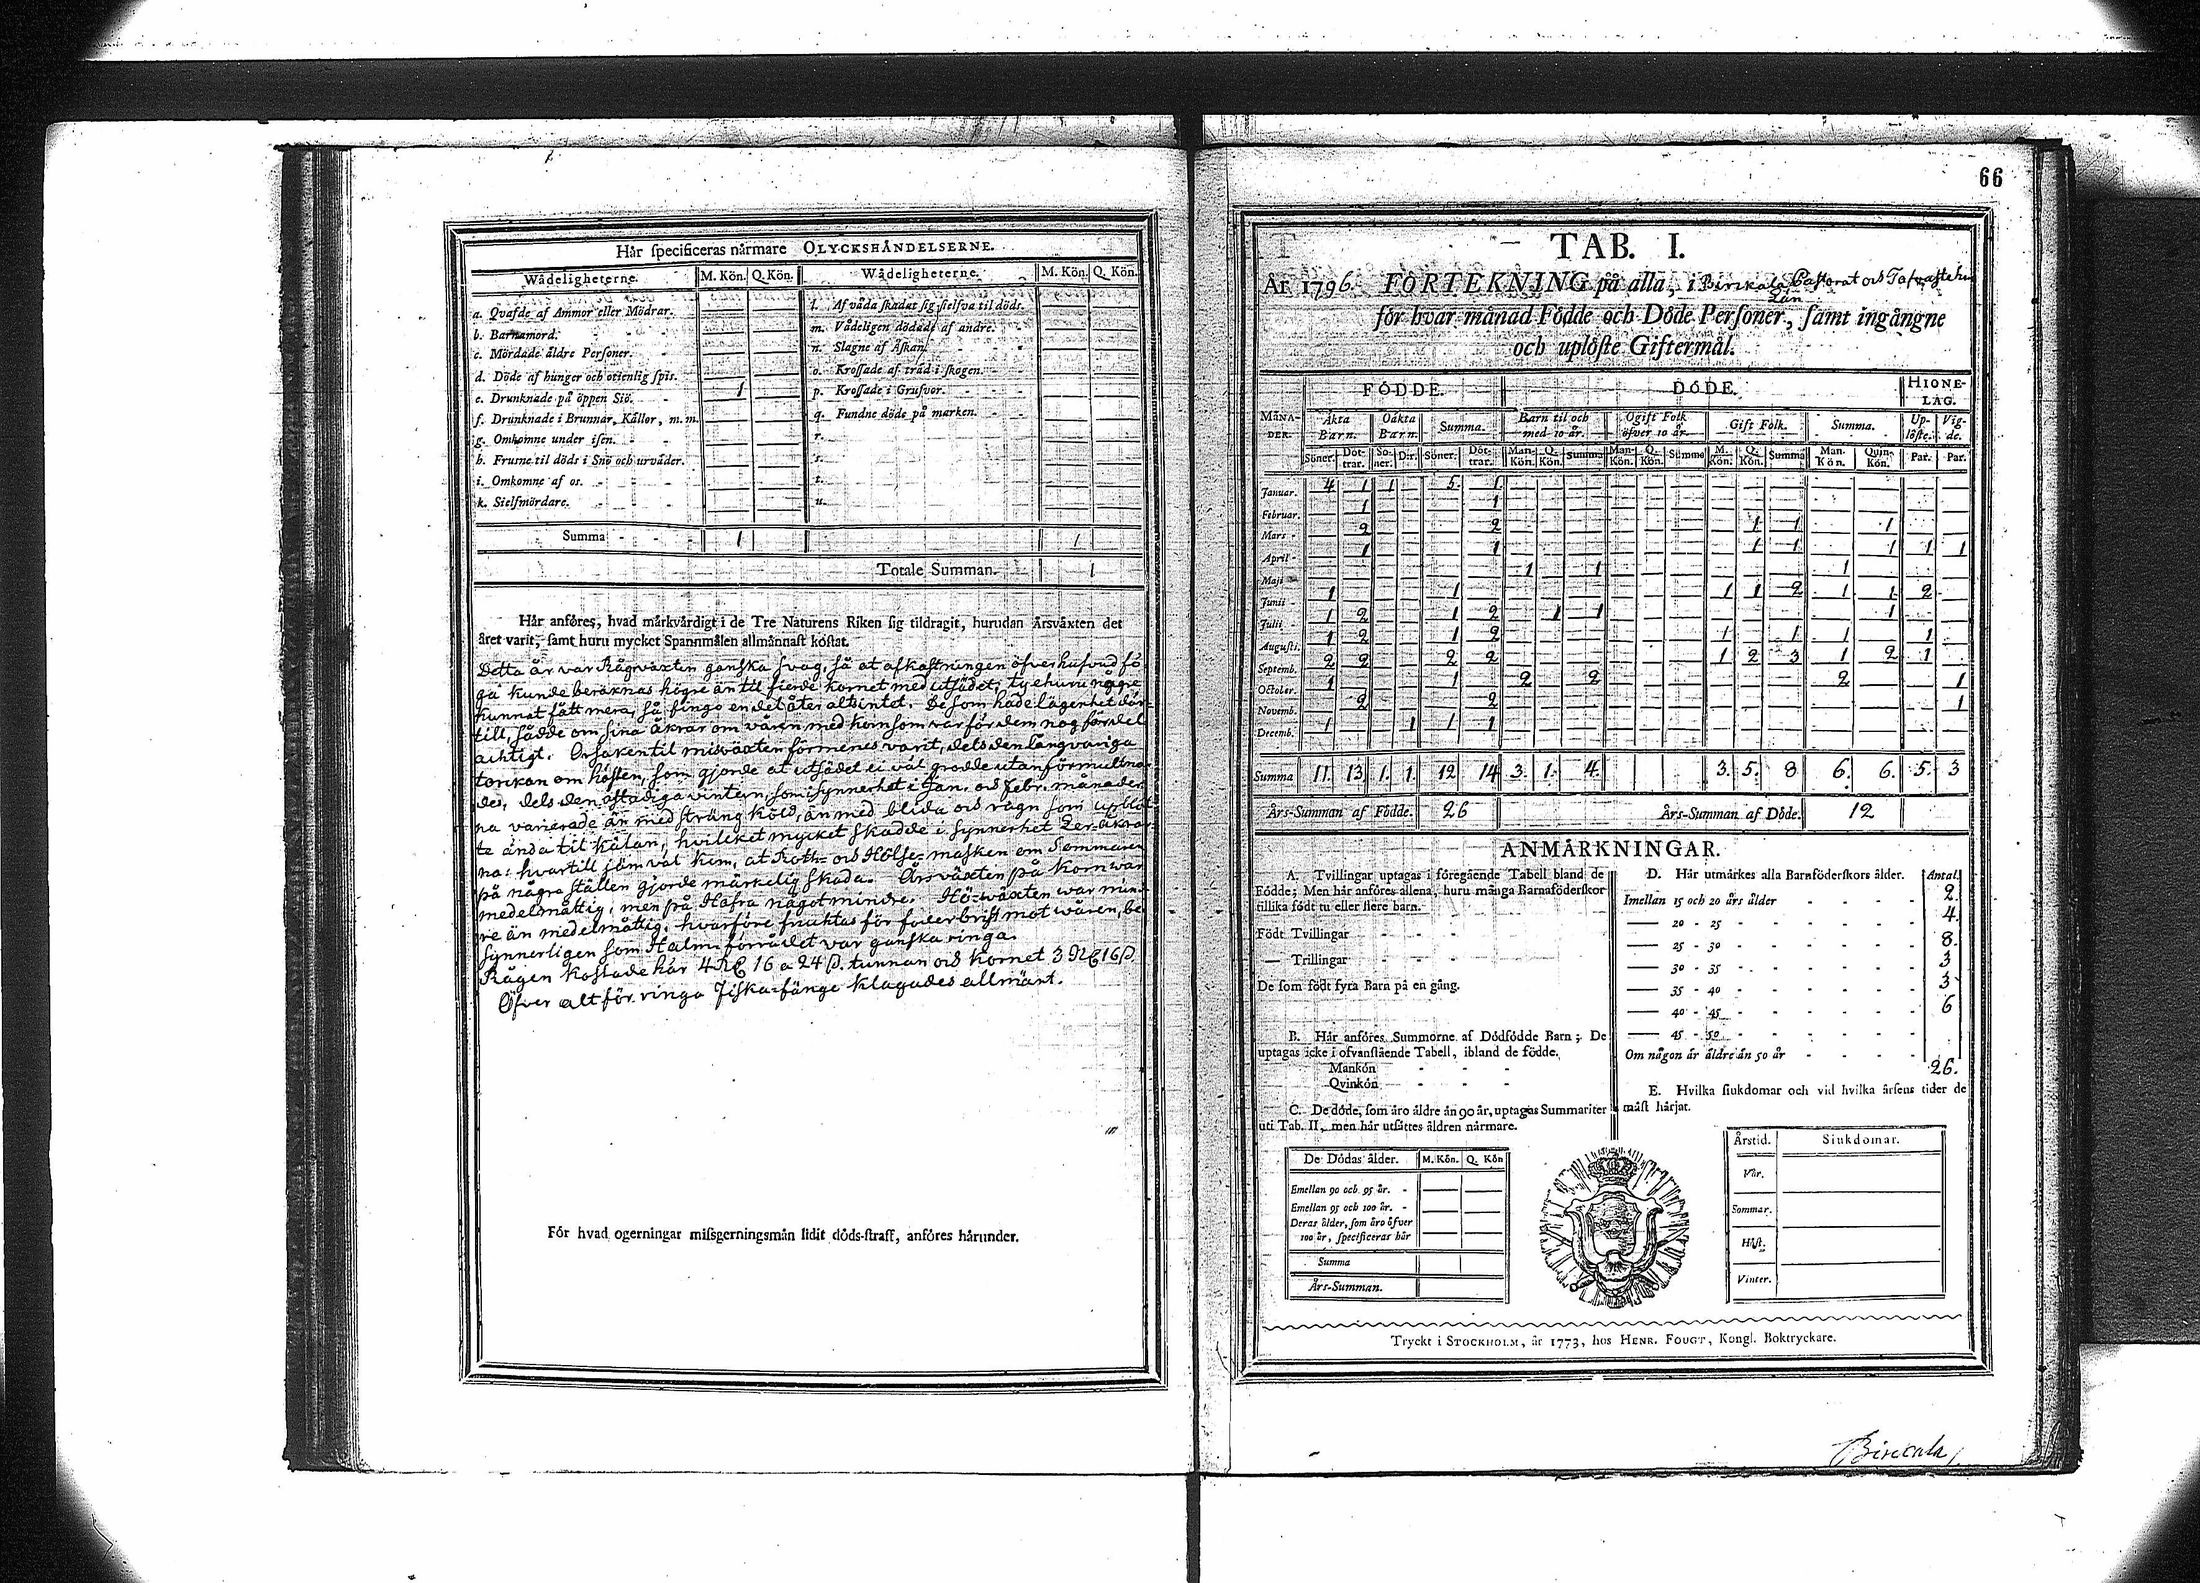 Här specificeras närmare OLYCKSHÄNDELSERNE.
Wådeligheterne. M. Kön. Q. Kön. Wådeligheterne. M. Kön. Q. Kön.
a. Qvafde af Ammor eller Mödrar. l. Af våda skadat sig sielfva til döds.
b. Barnamord. m. Vådeligen dödade af andre.
c. Mördade äldre Personer. n. Slagne af Åskan.
d. Döde af hunger och otienlig spis. o. Krossade af träd i skogen.
e. Drunknade på öppen Siö. 1 p. Krossade i Grufvor.
f. Drunknade i Brunnar, Källor, m. m. q. Fundne döde på marken.
g. Omkomne under isen. r.
h. Frusne til döds i Snö och urväder. s.
i. Omkomne af os. t.
k. Sielfmördare. u.
Summa 1 1
Totale Summan. 1
Här anföres, hvad märkvärdigt i de Tre Naturens Riken sig tildragit, hurudan Årsväxten det
året varit, samt huru mycket Spannmålen allmännast kostat.
Detta år var Rågväxten ganska svag, så at afkastningen öfverhufvud fö-
ga kunde beräknas högre än til fierde kornet med utsädet, tyehuru någre
kunnat fått mera, så fingo en del åter altsintet. De som hade lägenhet där-
till, sådde om sina åkrar om våren med korn som var för dem nog fördel
achtigt. Orsaken til misväxten förmenes varit, dels den långvariga
torckan om hösten, som gjorde at utsädet ei väl grodde utan förmultna-
des, dels den ostadiga vintern, som i synnerhet i Jan. och Febr. månader
na varierade än med sträng köld, än med blida och rägn som upblöt
te ända til kälan, hvilcket mycket skadde i synnerhet Ler-åkrar-
na: hvartill jämväl kom, at Roth- och Hölse-masken om Sommaren
på några ställen gjorde märkelig skada. Årsväxten på Korn war
medelmåttig, men på Hafra något mindre. Hö-wäxten war min-
re än medelmåttig, hvarföre fruktas för foderbrist mot wåren, be
synnerligen som Halm-förrådet var ganska ringa.
Rågen kostade här 4 R 16 a 24 ß. tunnan och Kornet 3 R 16 ß
Öfver alt för ringa Fiska-fänge klagades allmänt.
För hvad ogerningar missgerningsmän lidit döds-straff, anföres härunder.
66
TAB. I.
År 1796. FÖRTEKNING på alla, i Birckala Pastorat och Tafvastehus
Län
för hvar månad Födde och Döde Personer, samt ingångne
och uplöste Giftermål.
FÖDDE. DÖDE. HIONE-LAG.
MÅNA-DER. Äkta Barn. Oäkta Barn. Summa. Barn til och med 10 år. Ogift Folk öfver 10 år. Gift Folk. Summa. Up-löste. Vig-de.
Söner. Döt-trar. Sö-ner. D:r. Söner. Döt-trar. Man-Kön. Q. Kön. Summa Man-Kön. Q. Kön. Summa M. Kön. Q. Kön. Summa Man-Kön. Quin-Kön. Par. Par.
Januar. 4 1 1 5 1
Februar. 1 1
Mars 2 2 1 1 1
April 1 1 1 1 1 1 1
Maji 1 1 1
Junii 1 1 1 1 2 1 1 2
Julii 1 2 1 2 1 1 1
Augusti. 1 2 1 2 1 1 1 1
Septemb. 2 2 2 2 1 2 3 1 2 1
October. 1 1 2 2 2 1
Novemb. 2 2 1
Decemb. 1 1 1 1
Summa 11. 13. 1. 1. 12 14 3. 1. 4. 3. 5. 8 6. 6. 5. 3
Års-Summan af Födde. 26 Års-Summan af Döde. 12
ANMÄRKNINGAR.
A. Tvillingar uptagas i föregående Tabell bland de
Födde; Men här anföres allena, huru många Barnaföderskor
tillika födt tu eller flere barn.
Födt Tvillingar
— Trillingar
De som födt fyra Barn på en gång.
B. Här anföres Summorne af Dödfödde Barn; De
uptagas icke i ofvanstående Tabell, ibland de födde.
Mankön
Qvinkön
C. De döde, som äro äldre än 90 år, uptagas Summariter
uti Tab. II, men här utsättes åldren närmare.
De Dödas ålder. M. Kön. Q. Kön
Emellan 90 och 95 år.
Emellan 95 och 100 år.
Deras ålder, som äro öfver
100 år, specificeras här
Summa
Års-Summan.
D. Här utmärkes alla Barnföderskors ålder. Antal.
Imellan 15 och 20 års ålder 2.
— 20 - 25 4.
— 25 - 30 8.
— 30 - 35 3
— 35 - 40 3
— 40 - 45 6
— 45 - 50
Om någon är äldre än 50 år
26.
E. Hvilka siukdomar och vid hvilka årsens tider de
mäst härjat.
Årstid. Siukdomar.
Vår.
Sommar.
Höst.
Vinter.
Tryckt i STOCKHOLM, år 1773, hos HENR. FOUGT, Kongl. Boktryckare.
Birckala